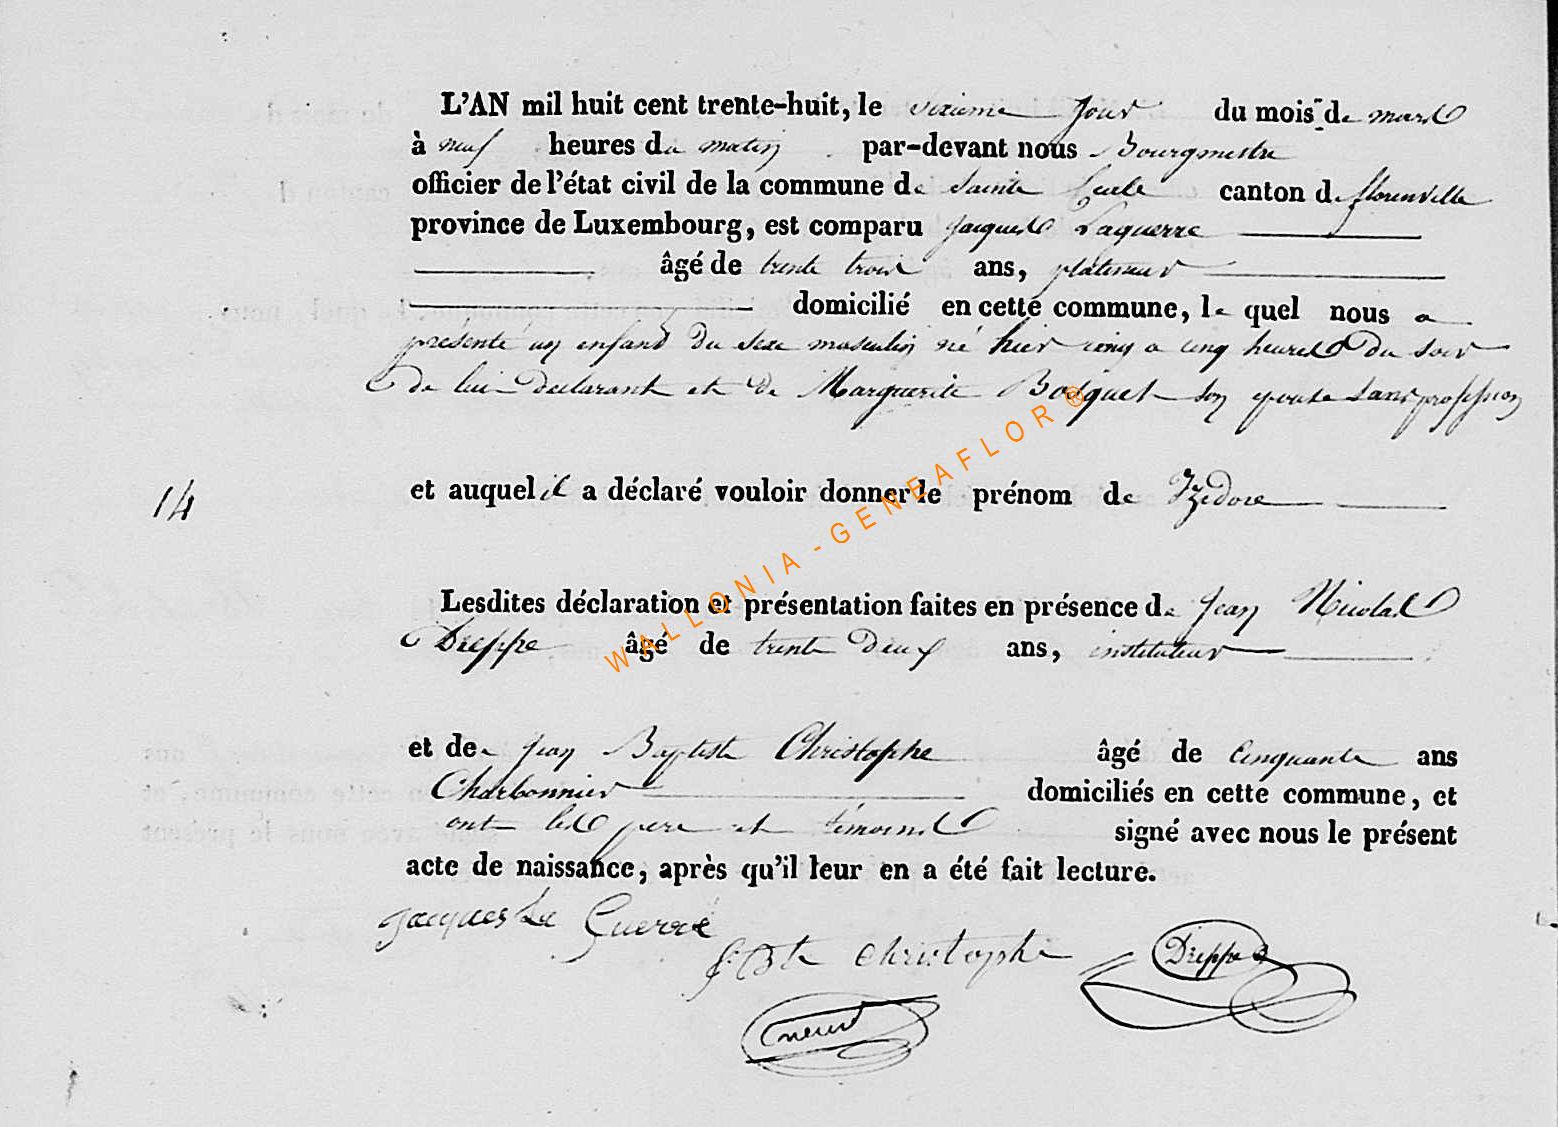 L'AN mil huit cent trente-huit, le sixieme jour du mois de mars
à neuf heures du matin par-devant nous Bourgmestre
officier de l'état civil de la commune de Sainte Cecile canton de florenville
province de Luxembourg, est comparu Jacques Laguerre
âgé de trente trois ans, platineur
domicilié en cette commune, le quel nous a
présenté un enfant du sexe masculin né hier a cinq heures du soir
de lui declarant et de Marguerite Bocquet son epouse sans profession
14
et auquel il a déclaré vouloir donner le prénom de Izedore
Lesdites déclaration et présentation faites en présence de Jean Nicolas
Dreppe âgé de trente deux ans, instituteur
et de Jean Baptiste Christophe âgé de cinquante ans
Charbonnier domiciliés en cette commune, et
ont les pere et témoins signé avec nous le présent
acte de naissance, après qu'il leur en a été fait lecture.
Jacques La Guerre
J. Bte Christophe
Dreppe
WALLONIA - GENEAFLOR ®